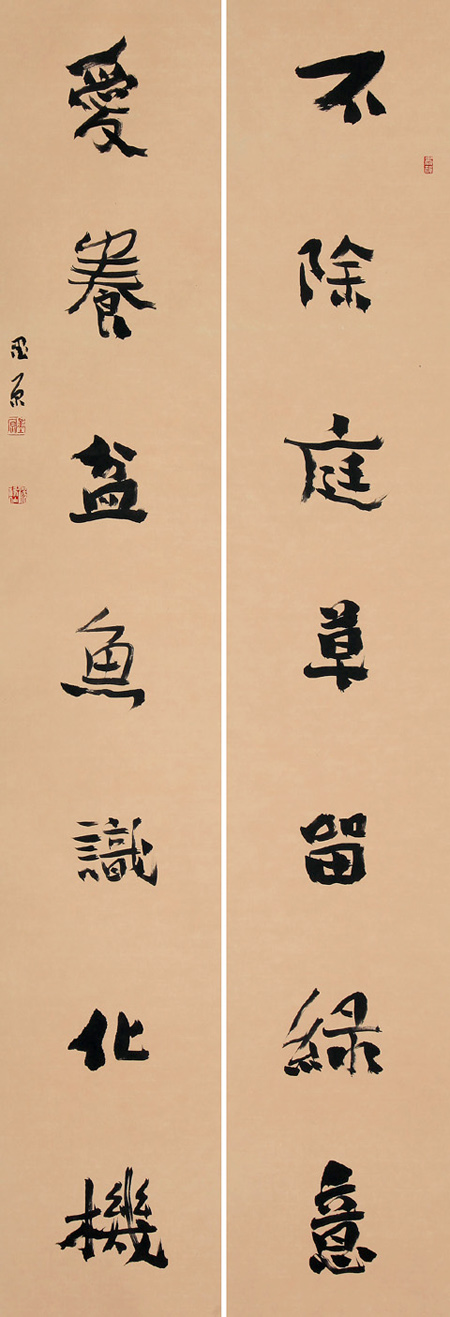 不除庭草留緑意
愛養盆魚識化機